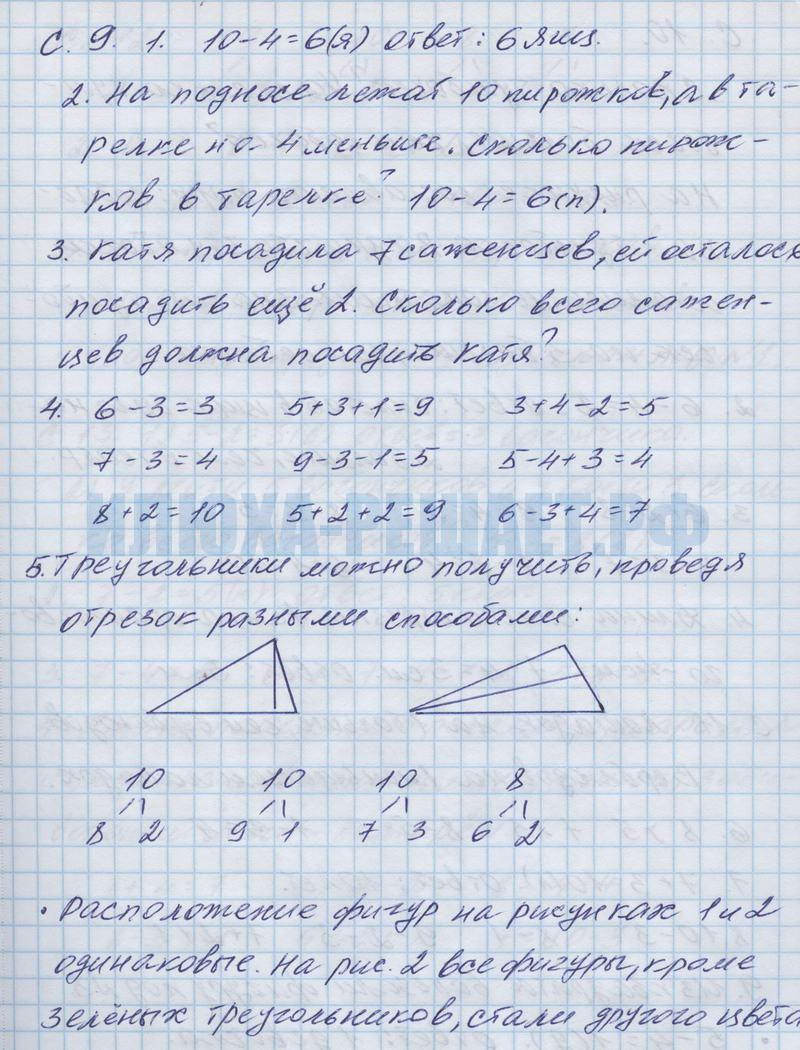 с. 9. 1. 10-4=6(я) ответ: 6 ящ.
2. На подносе лежат 10 пирожков, а в та-
релке на 4 меньше. Сколько пирож-
ков в тарелке? 10-4=6(п).
3. Катя посадила 7 саженцев, ей осталось
посадить ещё 2. Сколько всего сажен-
цев должна посадить Катя?
4. 6-3=3 5+3+1=9 3+4-2=5
7-3=4 9-3-1=5 5-4+3=4
8+2=10 5+2+2=9 6-3+4=7
ИЛЮХА-РЕШАЕТ.РФ
5. Треугольники можно получить, проведя
отрезок разными способами:
10 10 10 8
8 2 9 1 7 3 6 2
• Расположение фигур на рисунках 1 и 2
одинаковые. На рис. 2 все фигуры, кроме
зелёных треугольников, стали другого цвета.